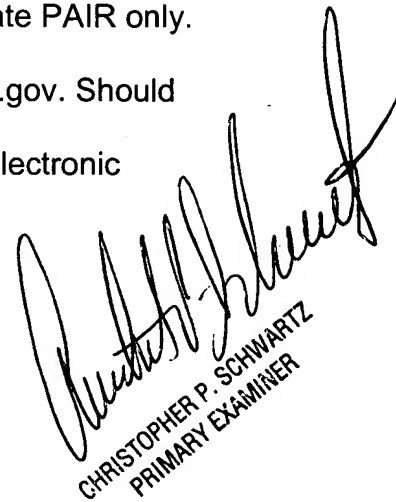 ate PAIR only.
.gov. Should
lectronic
CHRISTOPHER P. SCHWARTZ
PRIMARY EXAMINER